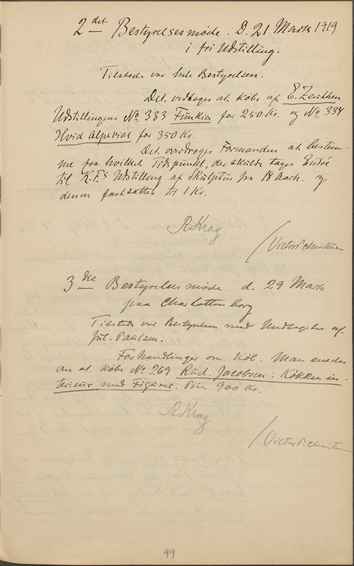 2det Bestyrelsesmøde. D. 21 Marts 1919
i fri Udstilling.
Tilstede var hele Bestyrelsen.
Det vedtoges at købe af E. Zeuthen
Udstillingens No. 383 Funkia for 250 Kr. og No. 384
Hvid Alpeviol for 350 Kr.
Det overdroges Formanden at bestem-
me paa hvilket Tidspunkt, der skulde tages Entré
til K.F.s Udstilling af Skulptur fra Marts. og
denne fastsattes til 1 Kr.
3die Bestyrelsesmøde d. 29 Marts
paa Charlottenborg
Tilstede var Bestyrelsen med Undtagelse af
Jul. Paulsen.
Forhandlinger om Køb. Man enedes
om at købe No. 269 Rud. Jacobsen: Køkken in-
teriør med Figurer. Pris 900 Kr.
99